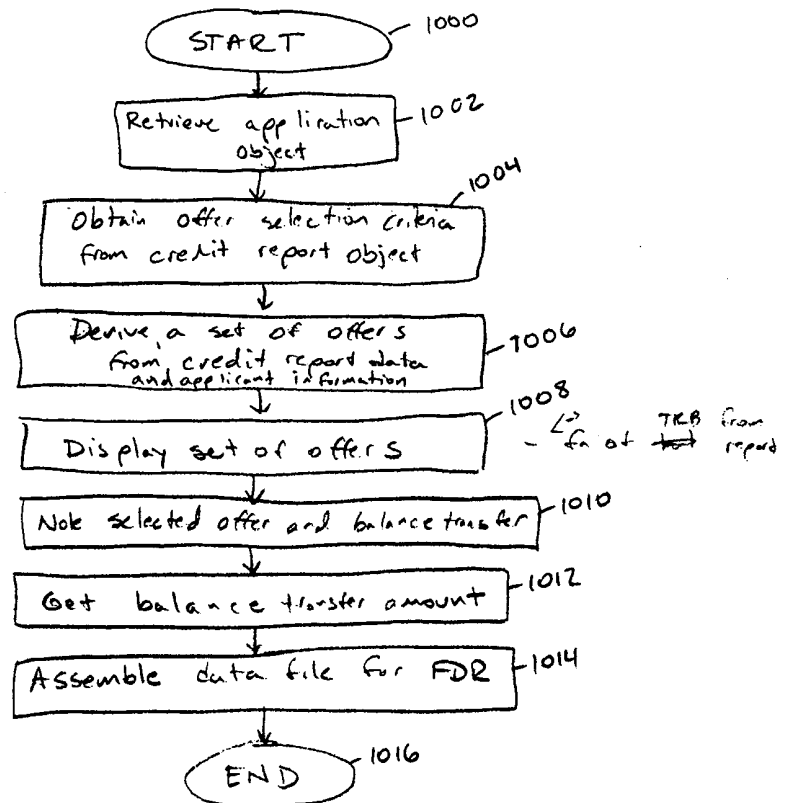 START
1000
Retrieve application
object
1002
1004
Obtain offer selection criteria
from credit report object
Derive a set of offers
from credit report data
and applicant information
1006
1008
Display set of offers
of TRB from
report
Note selected offer and balance transfer
1010
Get balance transfer amount
1012
Assemble data file for FDR
1014
END
1016